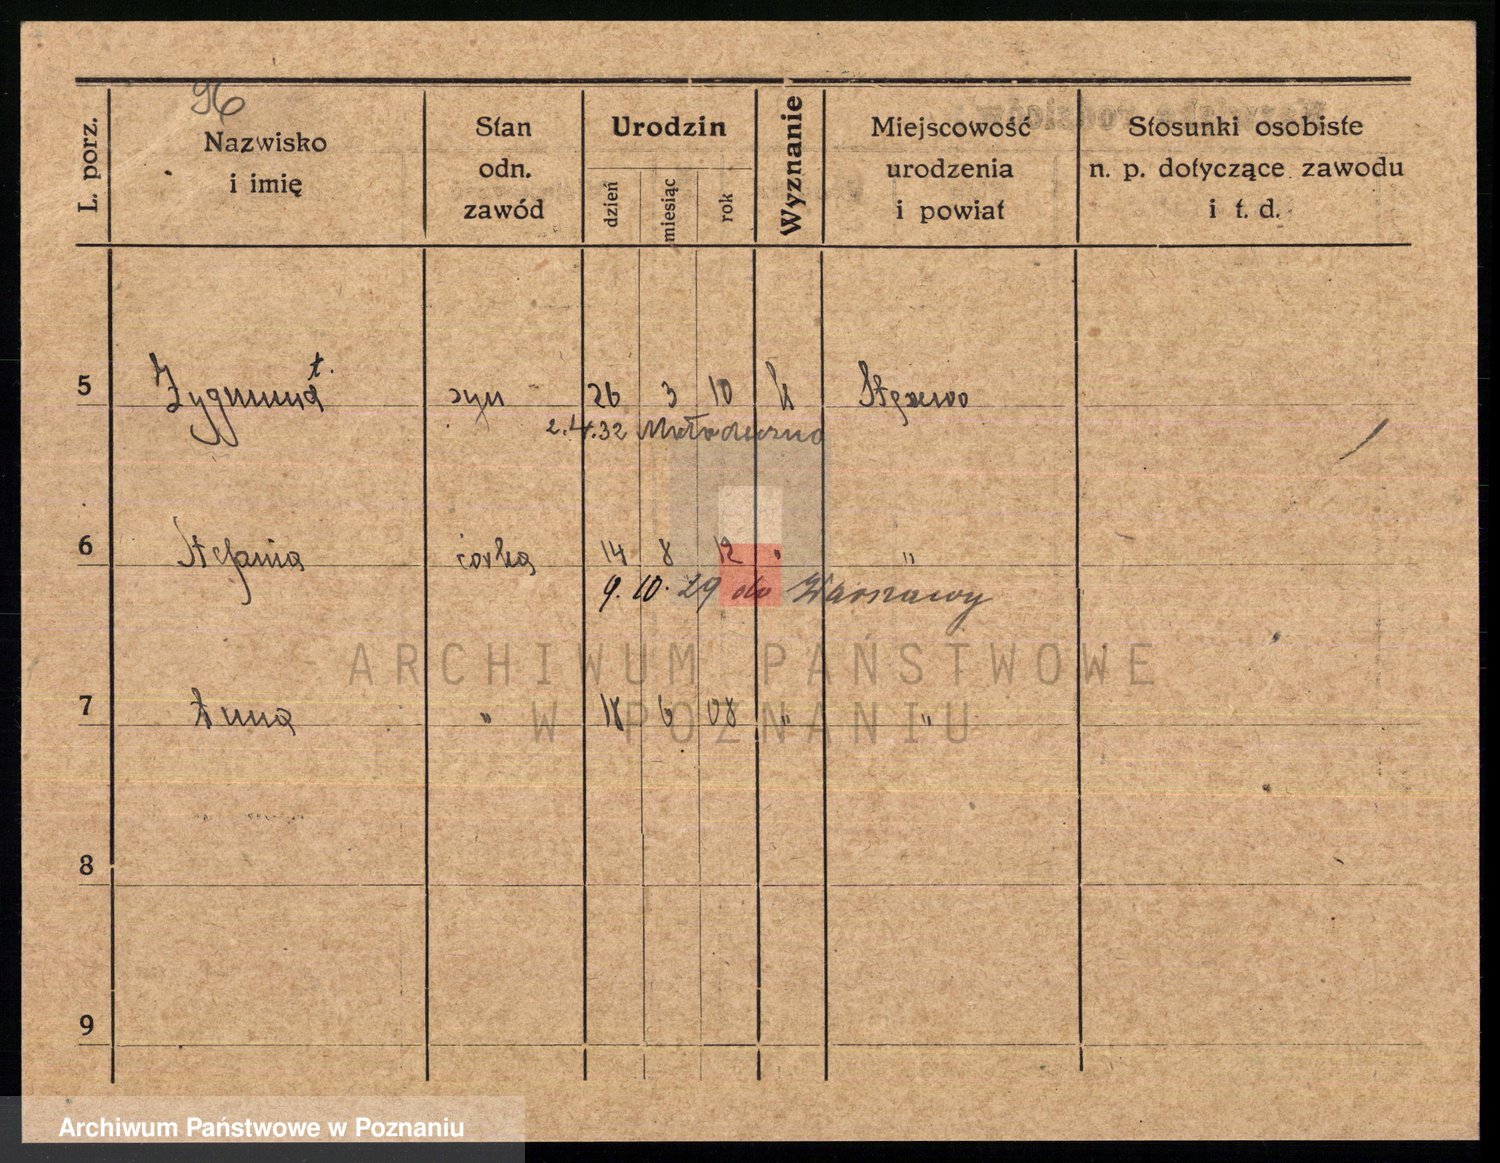 96
L. porz.
Nazwisko
i imię
Stan
odn.
zawód
Urodzin
dzień
miesiąc
rok
Wyznanie
Miejscowość
urodzenia
i powiat
Stosunki osobiste
n. p. dotyczące zawodu
i t. d.
5 Zygmund t. syn 26 3 10 k Stęszewo
2.4.32 Mołodeczno
6 Stefania córka 14 8 12 " "
9. 10. 29 do Warszawy
7 Anna " 18 6 08 " "
8
9
ARCHIWUM PAŃSTWOWE
W POZNANIU
Archiwum Państwowe w Poznaniu